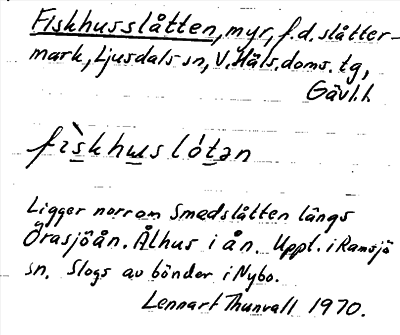 Fiskhusslåtten, myr, f.d. slåtter-
mark, Ljusdals sn, V. Häls. doms. tg,
Gävl. l.
fìskhuslótan
Ligger norr om Smedslåtten längs
Örasjöån. Ålhus i ån. Uppt. i Ramsjö
sn. Slogs av bönder i Nybo.
Lennart Thunvall 1970.